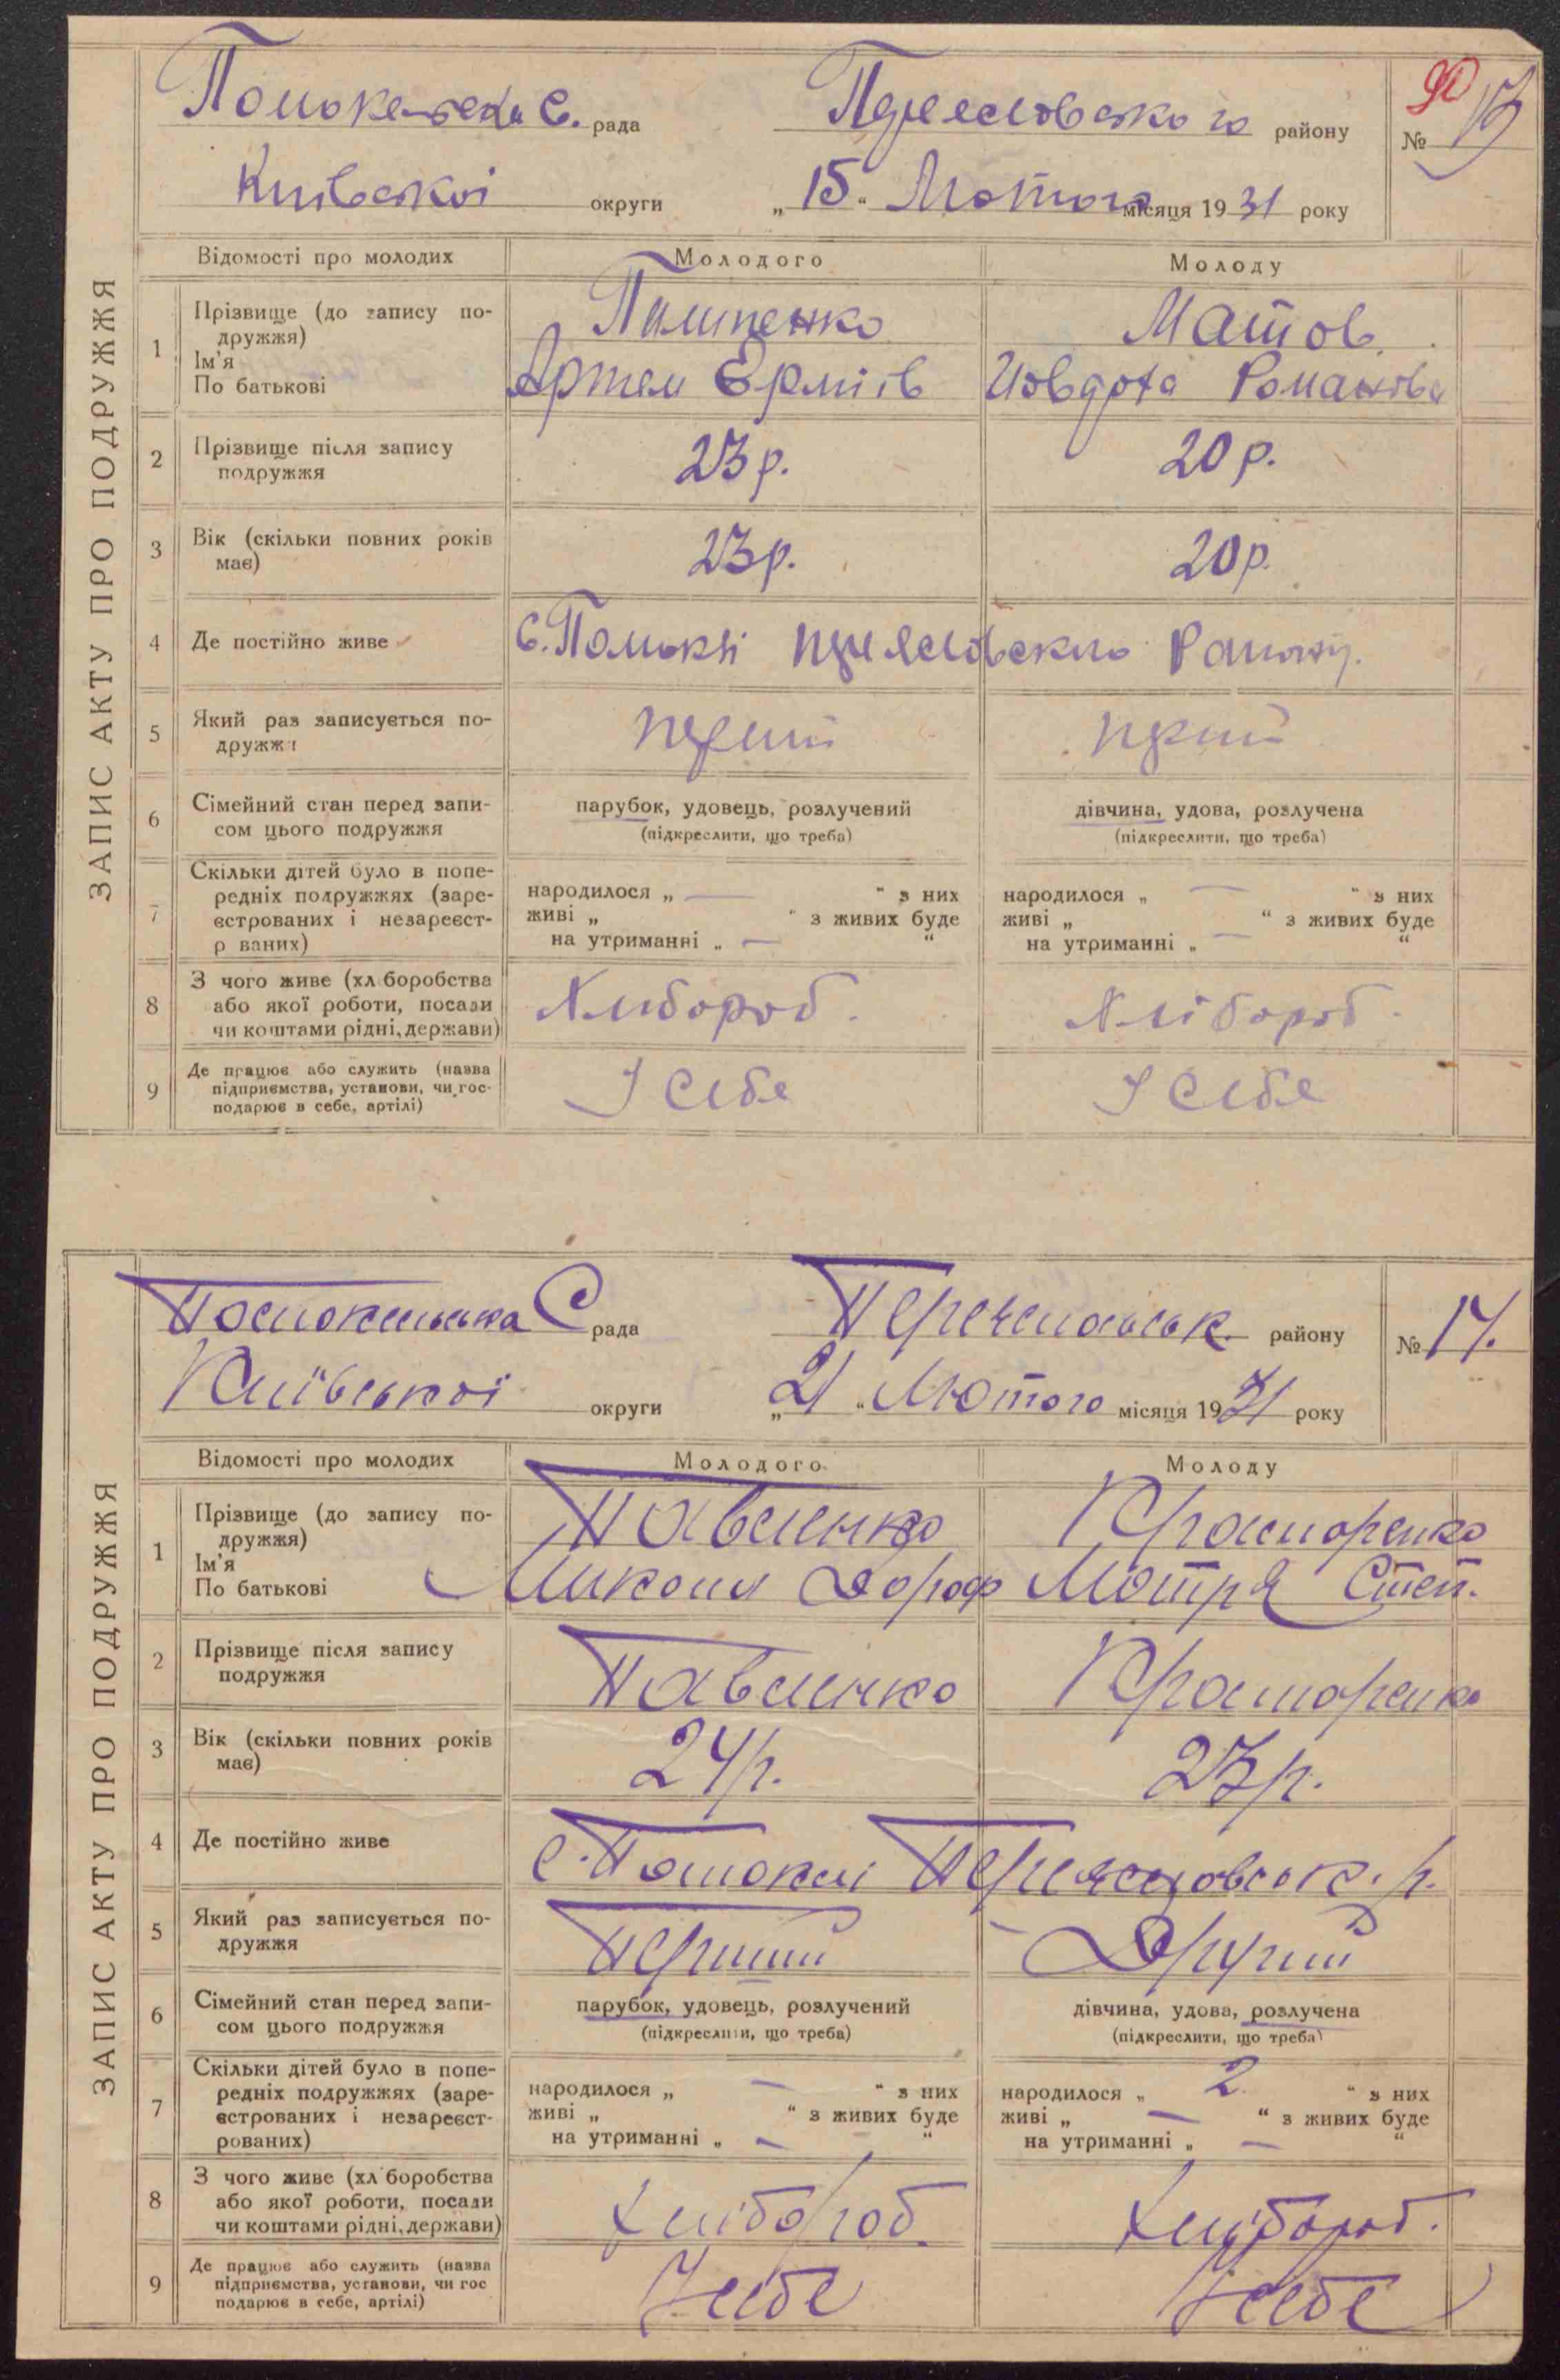 ЗАПИС АКТУ ПРО ПОДРУЖЖЯ
С. рада
району
№
Київської округи „15“ Лютого місяця 1931 року
Відомості про молодих
Молодого
Молоду
1 Прізвище (до запису подружжя)
Ім'я
По батькові
Пилипенко
Артем
Матов.
Романова
2 Прізвище після запису
подружжя
23р.
20 р.
3 Вік (скільки повних років
має)
23р.
20р.
4 Де постійно живе
с.
5 Який раз записується по-
дружжя
перший
6 Сімейний стан перед запи-
сом цього подружжя
парубок, удовець, розлучений
(підкреслити, що треба)
дівчина, удова, розлучена
(підкреслити, що треба)
7 Скільки дітей було в попе-
редніх подружжях (заре-
єстрованих і незареєст-
р ваних)
народилося „ — “ з них
живі „ “ з живих буде
на утриманні „ — “
народилося „ — “ з них
живі „ “ з живих буде
на утриманні „ — “
8 З чого живе (хл боробства
або якої роботи, посади
чи коштами рідні, держави)
Хлібороб.
Хлібороб.
9 Де працює або служить (назва
підприємства, установи, чи гос-
подарює в себе, артілі)
У себе
У себе
ЗАПИС АКТУ ПРО ПОДРУЖЖЯ
С рада
району
№ 17.
Київської округи „21“ Лютого місяця 1931 року
Відомості про молодих
Молодого
Молоду
1 Прізвище (до запису по-
дружжя)
Ім'я
По батькові
Павленко
Микола Дороф
Краморенко
Мотря Степ.
2 Прізвище після запису
подружжя
Павленко
Краморенко
3 Вік (скільки повних років
має)
24р.
23р.
4 Де постійно живе
с.
5 Який раз записується по-
дружжя
Перший
Другий
6 Сімейний стан перед запи-
сом цього подружжя
парубок, удовець, розлучений
(підкреслити, що треба)
дівчина, удова, розлучена
(підкреслити, що треба)
7 Скільки дітей було в попе-
редніх подружжях (заре-
єстрованих і незареєст-
рованих)
народилося „ — “ з них
живі „ “ з живих буде
на утриманні „ — “
народилося „ 2 “ з них
живі „ — “ з живих буде
на утриманні „ — “
8 З чого живе (хл боробства
або якої роботи, посади
чи коштами рідні, держави)
Хлібороб.
Хлібороб.
9 Де працює або служить (назва
підприємства, установи, чи гос
подарює в себе, артілі)
У себе
У себе